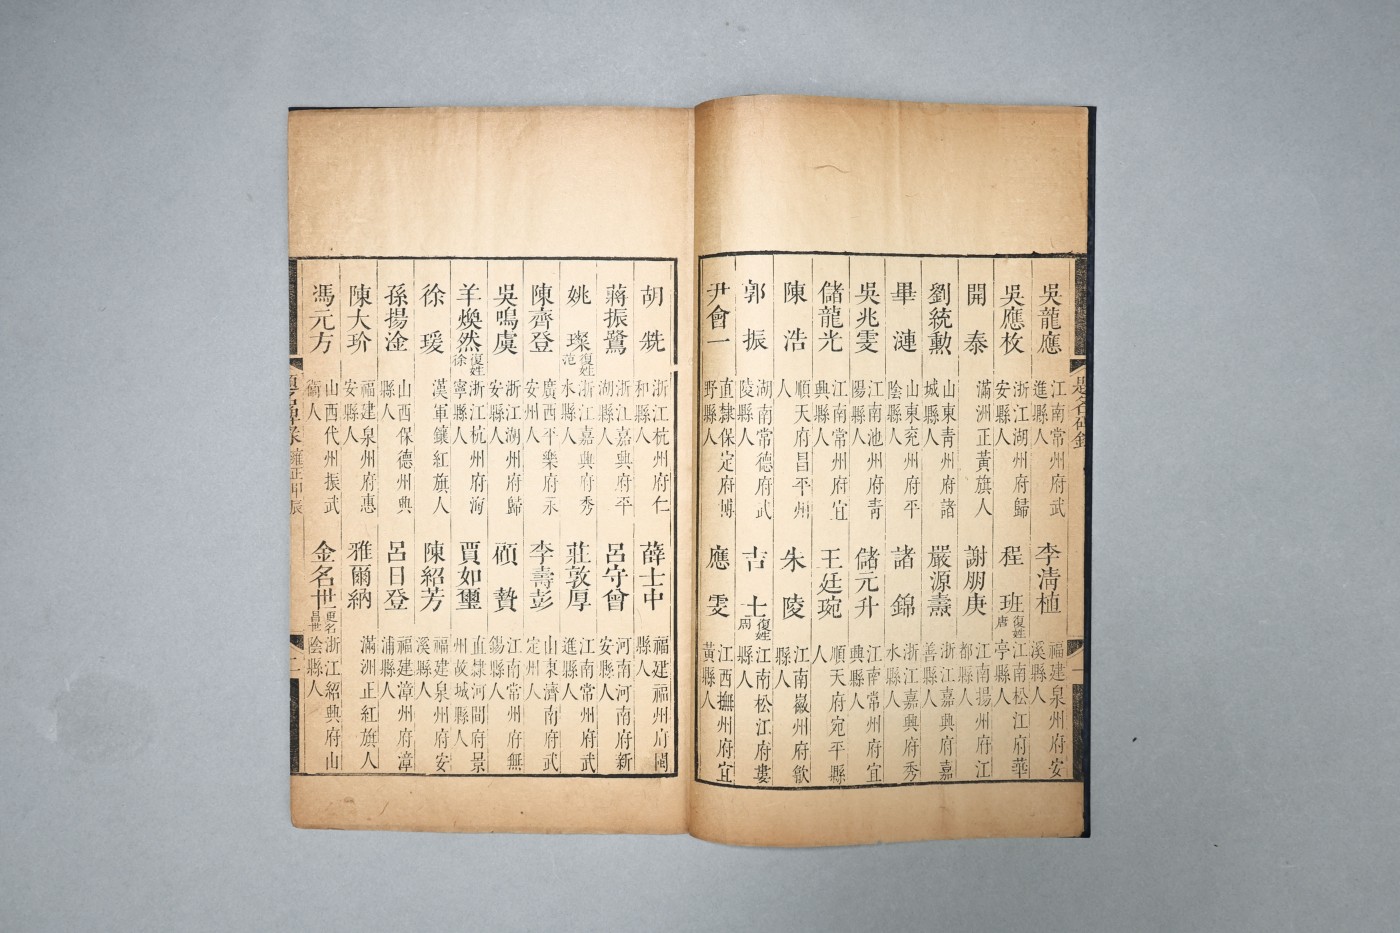 吳龍應 江南常州府武進縣人 李清植 福建泉州府安溪縣人
吳應枚 浙江湖州府歸安縣人 程班 復姓唐 江南松江府華亭縣人
開泰 滿洲正黃旗人 謝朋庚 江南揚州府江都縣人
劉統勳 山東青州府諸城縣人 嚴源燾 浙江嘉興府嘉善縣人
畢漣 山東兗州府平陰縣人 諸錦 浙江嘉興府秀水縣人
吳兆雯 江南池州府青陽縣人 儲元升 江南常州府宜興縣人
儲龍光 江南常州府宜興縣人 王廷琬 順天府宛平縣人
陳浩 順天府昌平州人 朱陵 江南徽州府歙縣人
郭振 湖南常德府武陵縣人 吉士 復姓周 江南松江府婁縣人
尹會一 直隸保定府博野縣人 應雯 江西撫州府宜黃縣人
胡𤍞 浙江杭州府仁和縣人 薛士中 福建福州府閩縣人
蔣振鷺 浙江嘉興府平湖縣人 呂守曾 河南河南府新安縣人
姚璨 復姓范 浙江嘉興府秀水縣人 莊敦厚 江南常州府武進縣人
陳齊登 廣西平樂府永安州人 李壽彭 山東濟南府武定州人
吳鳴虞 浙江湖州府歸安縣人 碩贊 江南常州府無錫縣人
羊煥然 復姓徐 浙江杭州府海寧縣人 賈如璽 直隸河間府景州故城縣人
徐瑗 漢軍鑲紅旗人 陳紹芳 福建泉州府安溪縣人
孫揚淦 山西保德州興縣人 呂日登 福建漳州府漳浦縣人
陳大玠 福建泉州府惠安縣人 雅爾納 滿洲正紅旗人
馮元方 山西代州振武衛人 金名世 更名昌世 浙江紹興府山陰縣人
題名碑錄 雍正甲辰 二
題名碑錄